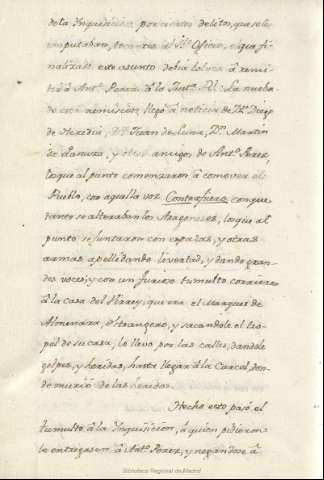 de la Inquisicion por ciertos delitos, que se le
imputaban, tocantes al Sto. Oficio, i que fi-
nalizado este asunto debia bolver á remi-
tirse á Anto. Perez á la
de esta remision, llegó á noticia de Dn. Diego
de Heredia, Dn. Juan de Luna, Dn. Martin
de Lanuza, y otros amigos de Anto. Perez,
los que al punto comenzaron á comover el
Pueblo, con aquella voz Contrafuero, con que
tanto se alteraban los Aragoneses, los que al
punto se juntaron con espadas, y otras
armas apellidando livertad, y dando gran-
des voces; y con un furioso tumulto corrieron
á la casa del Virrey, que era el Marques de
Almenara, estrangero, y sacandole el tro-
pel de su casa, lo llevó por las calles, dandole
golpes, y heridas, hasta llegar á la Carcel, don-
de murió de las heridas.
Hecho esto, pasó el
tumulto á la Inquisicion, á quien pidieron
le entregasen á Anto. Perez, y negandose á
Biblioteca Regional de Madrid